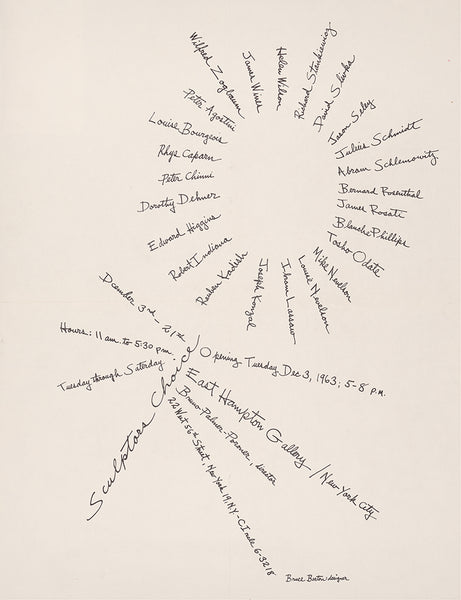 Wilfred Zogbaum
James Wines
Helen Wilson
Richard Stankiewicz
David Slivka
Jason Seley
Julius Schmidt
Abram Schlemowitz
Bernard Rosenthal
James Rosati
Blanche Phillips
Tosho Odate
Mike Nevelson
Louise Nevelson
Ibram Lassaw
Joseph Konzal
Reuben Kadish
Robert Indiana
Edward Higgins
Dorothy Dehner
Peter Chinni
Rhys Caparn
Louise Bourgeois
Peter Agostini
December 3rd - 21st
Hours: 11 am. to 5:30 p.m.
Tuesday through Saturday
Sculptors Choice
Opening Tuesday Dec 3, 1963; 5-8 P.M.
East Hampton Gallery / New York City
Bruno-Palmer-Poroner, director
22 West 56th Street, New York 19, N.Y. - CIrcle 6-3218
Bruce Burton designer